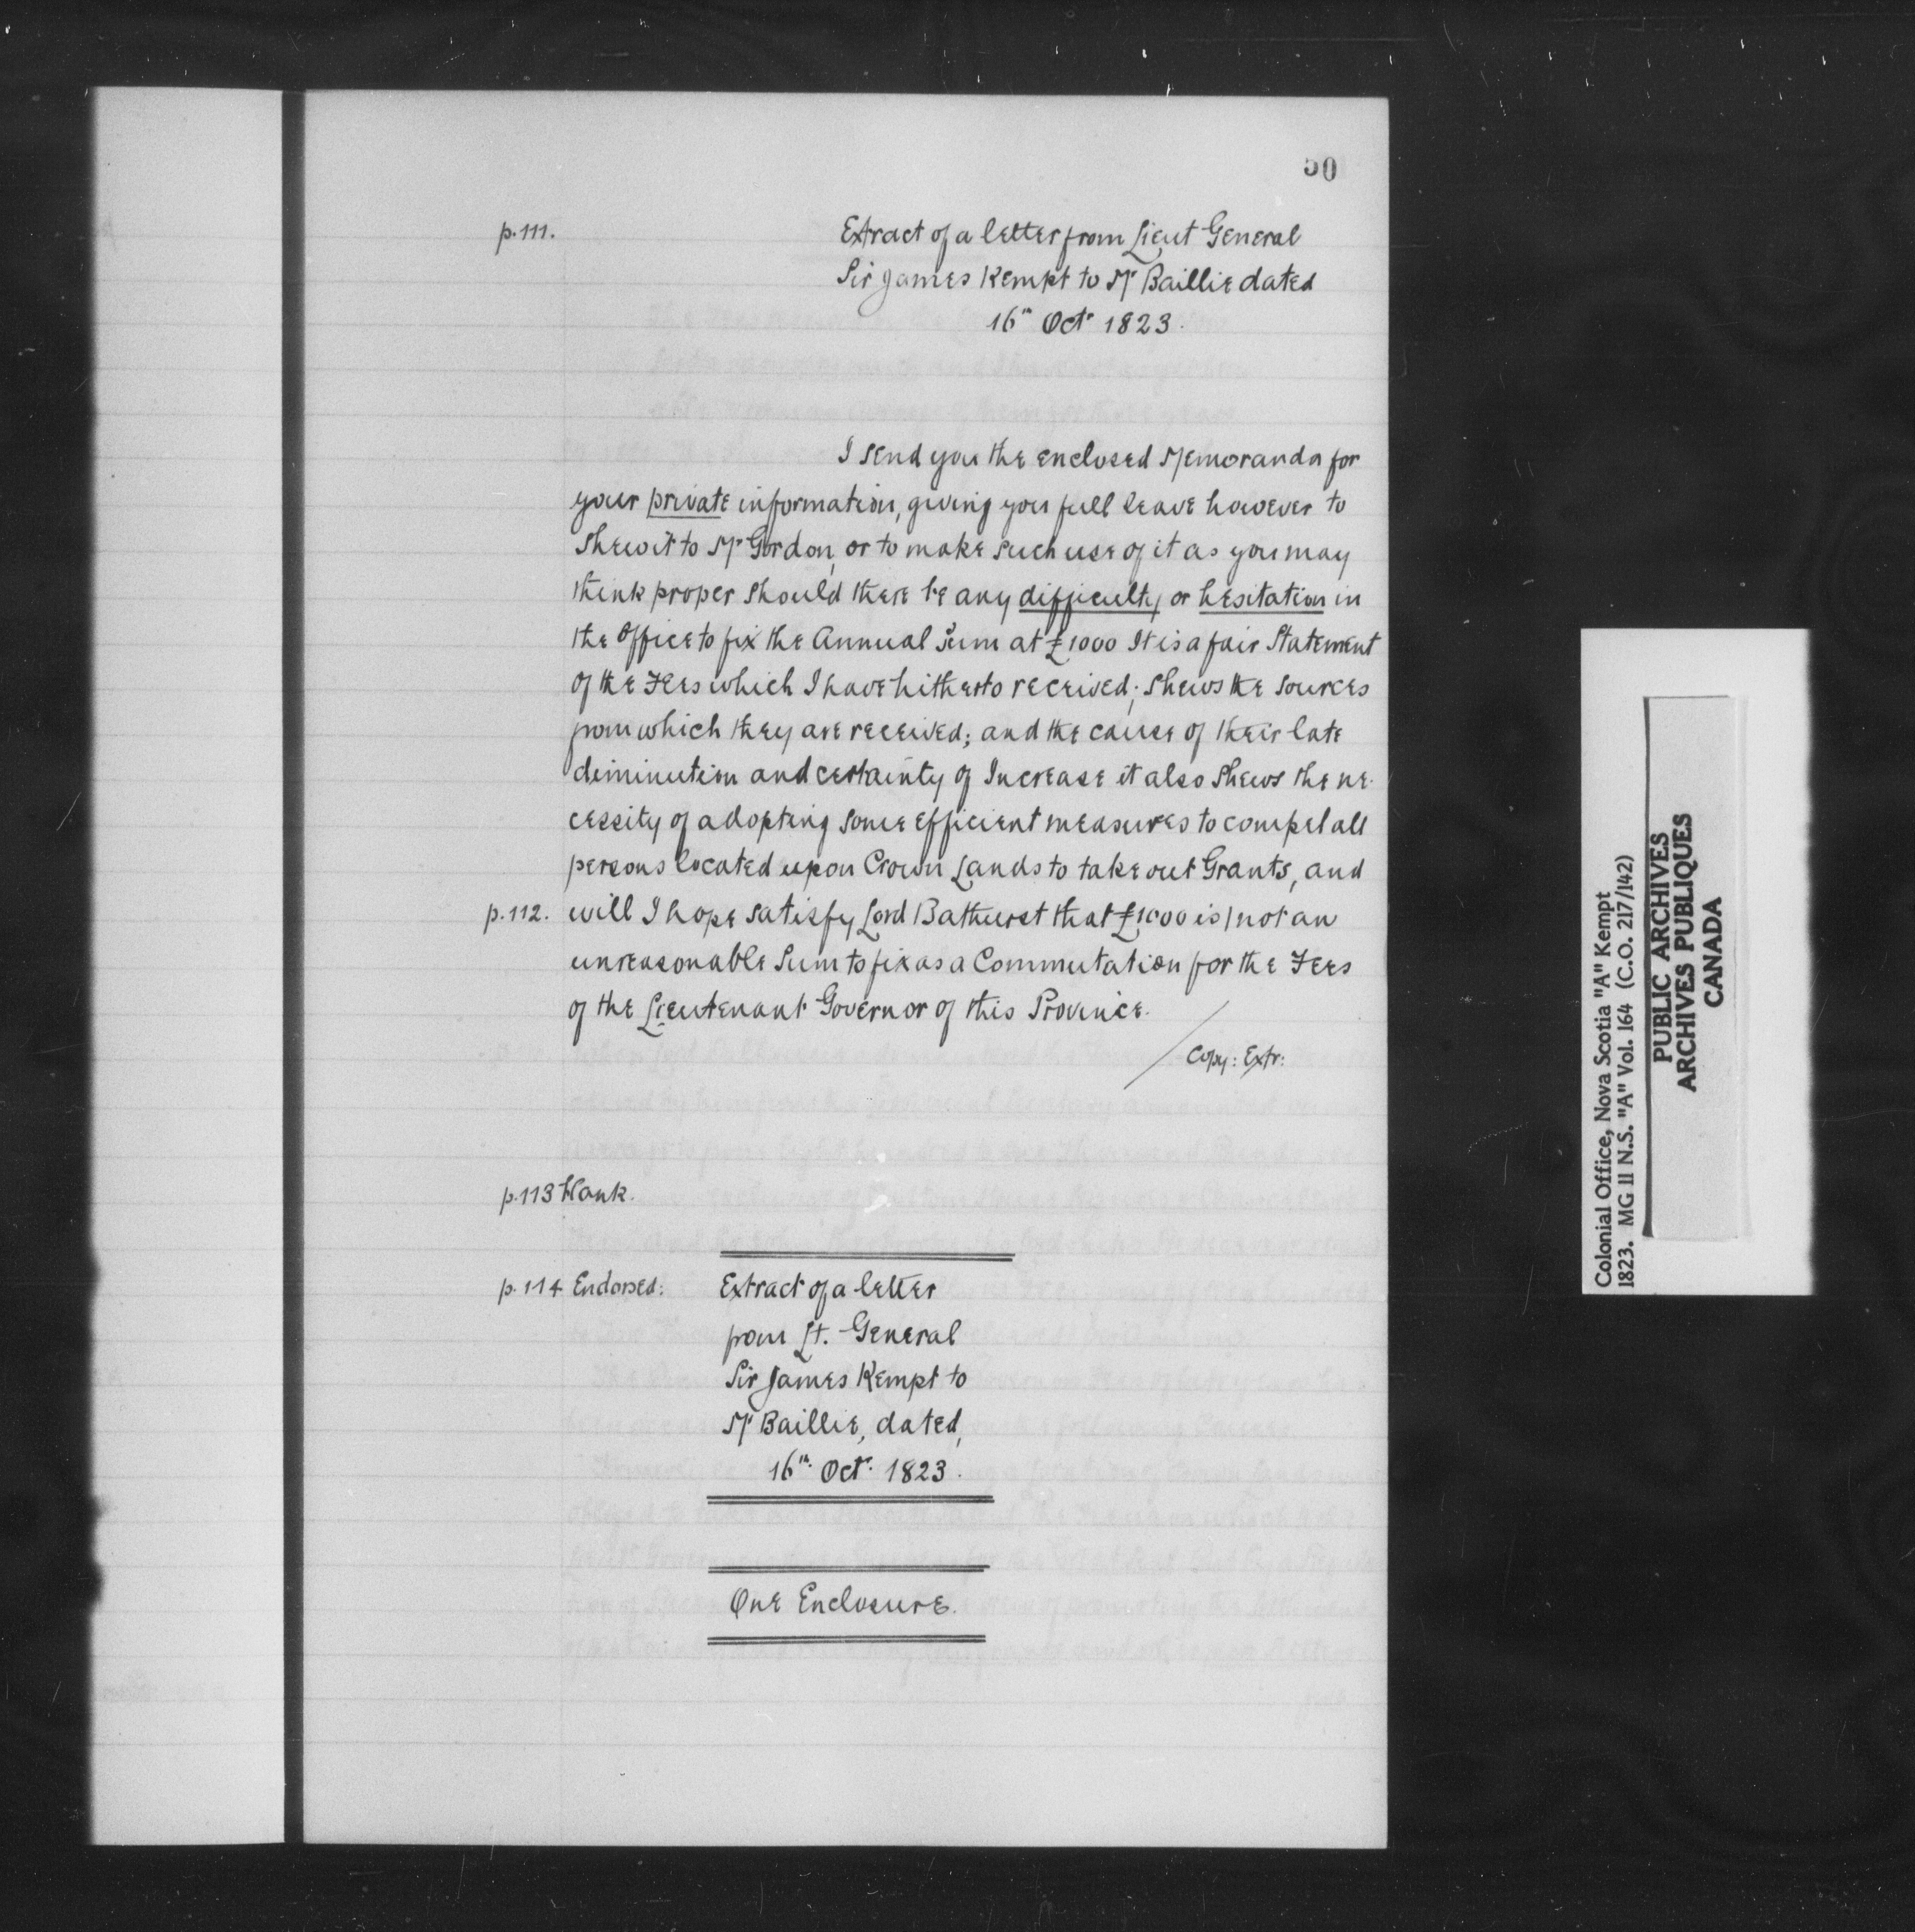 50
p.111.
Extract of a letter from Lieut General
Sir James Kempt to Mr Baillie dated
16th Octr 1823.
I send you the enclosed Memoranda for
your private information, giving you full leave however to
shew it to Mr Gordon, or to make such use of it as you may
think proper should there be any difficulty or hesitation in
the Office to fix the Annual Sum at £1000 It is a fair Statement
of the Fees which I have hitherto received; shews the sources
from which they are received; and the cause of their late
diminution and certainty of Increase it also shews the ne-
cessity of adopting some efficient measures to compel all
persons located upon Crown Lands to take out Grants, and
p.112. will I hope satisfy Lord Bathurst that £1000 is/not an
unreasonable Sum to fix as a Commutation for the Fees
of the Lieutenant Governor of this Province.
Copy: Extr:
p.113 blank.
p.114 Endorsed: Extract of a letter
from Lt. General
Sir James Kempt to
Mr Baillie, dated,
16th. Octr. 1823.
One Enclosure.
Colonial Office, Nova Scotia "A" Kempt
1823. MG 11 N.S. "A" Vol. 164 (C.O. 217/142)
PUBLIC ARCHIVES
ARCHIVES PUBLIQUES
CANADA